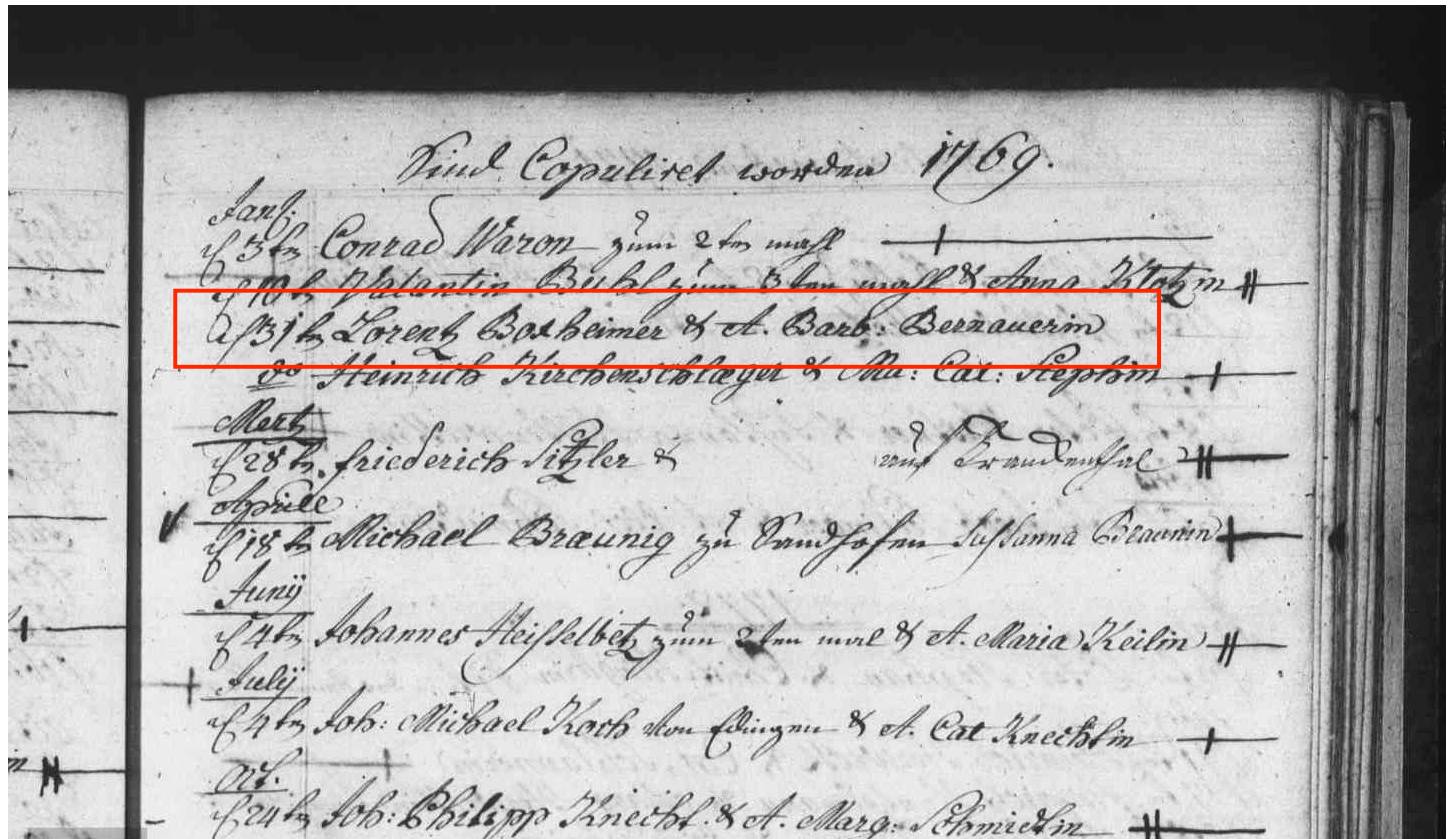 Sind Copuliret worden 1769.
Jan:
d 3tn Conrad Waron zum 2ten mahl
d 10tn Valantin zum 3ten mahl & Anna Klotzin
d 31tn Lorentz Boxheimer & A. Barb: Bernauerin
do Heinrich Kirchenschlæger & Ma: Cat: Stephin
Mertz
d 28tn friederich Sitzler & auf
Aprill
d 18tn Michael Bræunig zu Sandhofen Susanna Braunin
Junij
d 4tn Johannes Heisselbetz zum 2ten mal & A. Maria Keilin
Julij
d 4tn Joh: Michael Koch von Edingen & A. Cat Knechtin
Oct.
d 24tn Joh: Philipp Knecht & A. Marg: Schmidtin